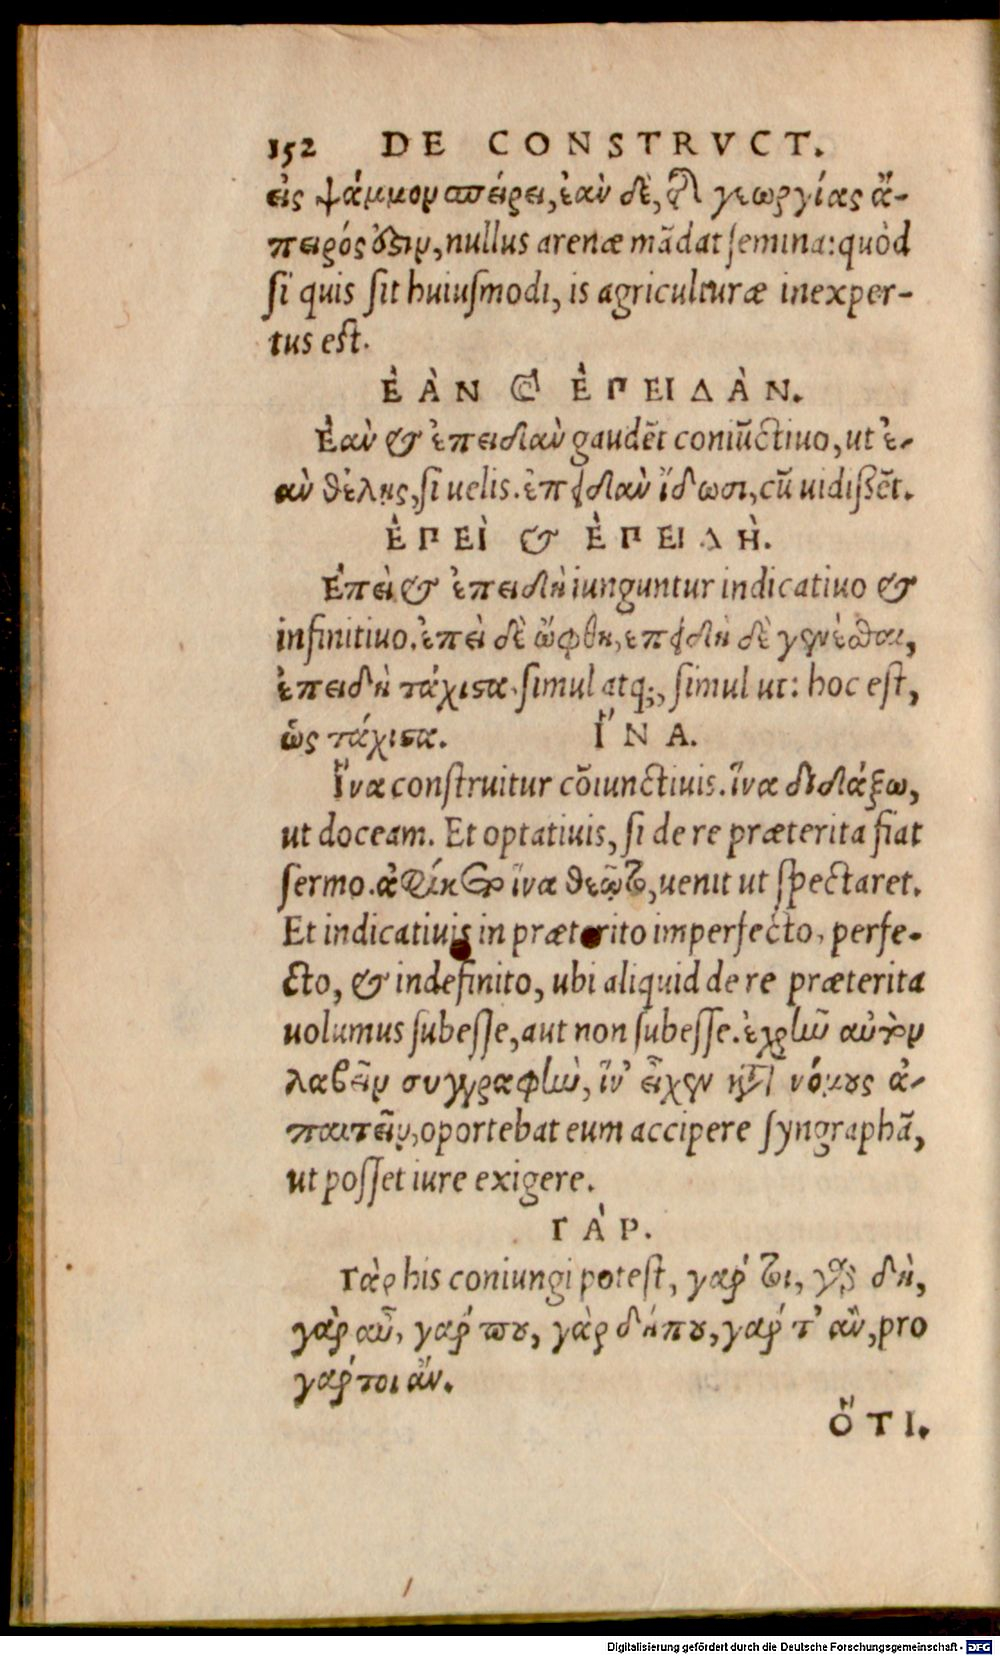 152 DE CONSTRVCT.
εἰς ψάμμον σπείρει, ἐὰν δὲ, τῆς γεωργίας ἄ-
πειρός ὅστιν, nullus arenæ mãdat semina: quòd
si quis sit huiusmodi, is agriculturæ inexper-
tus est.
ἘÀΝ & ἘΠΕΙΔÀΝ.
Ἐὰν & ἐπειδὰν gaudẽt coniũctiuo, ut ἐ-
ὰν θέλῃς, si uelis. ἐπειδὰν ἴδωσι, cũ uidissẽt.
ἘΠΕÌ & ἘΠΕΙΔῊ.
Ἐπεὶ & ἐπειδὴ iunguntur indicatiuo &
infinitiuo. ἐπεὶ δὲ ὤφθη, ἐπειδὴ δὲ γενέσθαι,
ἐπειδὴ τάχιστα. simul atq;, simul ut: hoc est,
ὡς τάχιστα. ἽΝΑ.
Ἵνα construitur cõiunctiuis. ἵνα διδάξω,
ut doceam. Et optatiuis, si de re præterita fiat
sermo. ἀφίκετο ἵνα θεῷτο, uenit ut spectaret.
Et indicatiuis in præterito imperfecto, perfe-
cto, & indefinito, ubi aliquid de re præterita
uolumus subesse, aut non subesse. ἐχρῆν αὐτὸν
λαβεῖν συγγραφὴν, ἵν' εἶχεν κατὰ νόμους ἀ-
παιτεῖν, oportebat eum accipere syngraphã,
ut posset iure exigere.
ΓÀΡ.
Γὰρ his coniungi potest, γάρ τι, γὰρ δὴ,
γὰρ αὖ, γάρ που, γὰρ δήπου, γάρ τ' ἂν, pro
γάρ τοι ἄν.
ὍΤΙ.
Digitalisierung gefördert durch die Deutsche Forschungsgemeinschaft - DFG